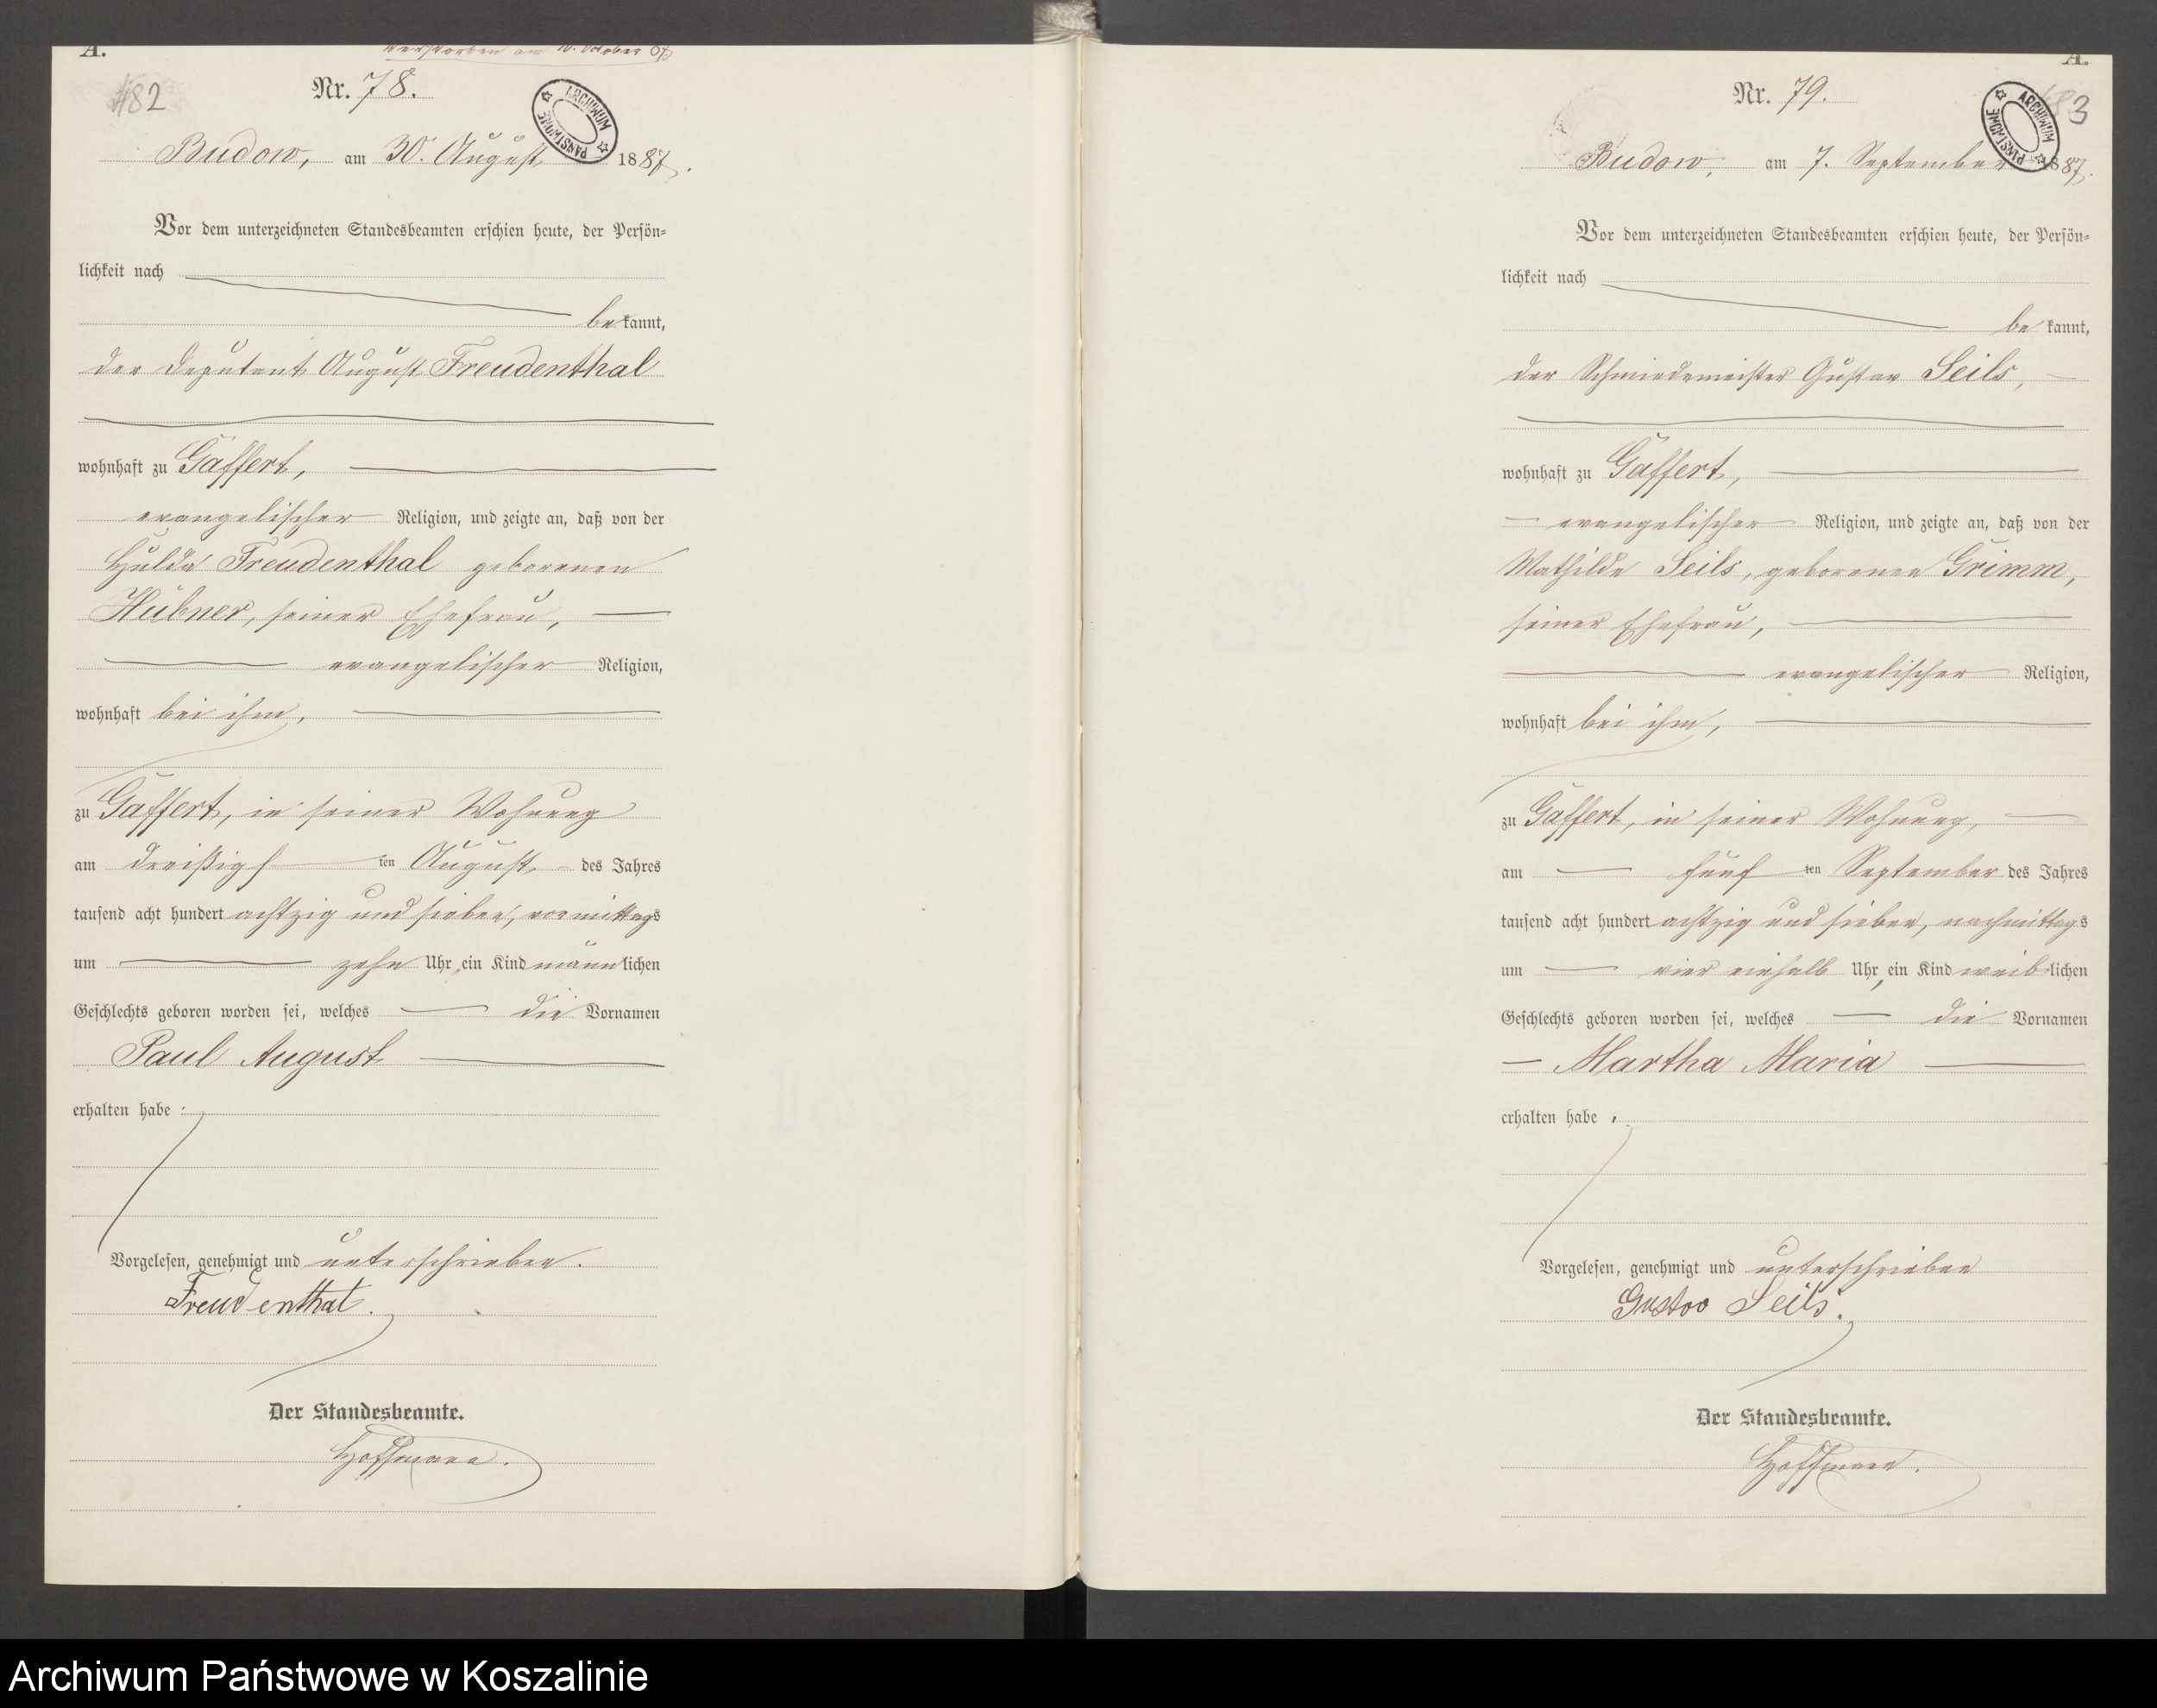 A.
verstorben am 10. October 87
482
Nr. 78.
ARCHIWUM PAŃSTWOWE
Budow, am 30. August 1887.
Vor dem unterzeichneten Standesbeamten erschien heute, der Persön-
lichkeit nach
bekannt,
der Deputant August Freudenthal
wohnhaft zu Gaffert,
evangelischer Religion, und zeigte an, daß von der
Hulda Freudenthal geborenen
Hübner, seiner Ehefrau,
evangelischer Religion,
wohnhaft bei ihm,
zu Gaffert, in seiner Wohnung
am dreißigsten August des Jahres
tausend acht hundert achtzig und sieben, vormittags
um zehn Uhr, ein Kind männlichen
Geschlechts geboren worden sei, welches die Vornamen
Paul August
erhalten habe.
Vorgelesen, genehmigt und unterschrieben.
Freudenthal.
Der Standesbeamte.
Hoffmann.
A.
Nr. 79.
483
ARCHIWUM PAŃSTWOWE
Budow, am 7. September 1887.
Vor dem unterzeichneten Standesbeamten erschien heute, der Persön-
lichkeit nach
bekannt,
der Schmiedemeister Gustav Seils,
wohnhaft zu Gaffert,
evangelischer Religion, und zeigte an, daß von der
Mathilde Seils, geborenen Grimm,
seiner Ehefrau,
evangelischer Religion,
wohnhaft bei ihm,
zu Gaffert, in seiner Wohnung,
am fünften September des Jahres
tausend acht hundert achtzig und sieben, nachmittags
um vier einhalb Uhr, ein Kind weiblichen
Geschlechts geboren worden sei, welches die Vornamen
Martha Maria
erhalten habe.
Vorgelesen, genehmigt und unterschrieben
Gustav Seils.
Der Standesbeamte.
Hoffmann.
Archiwum Państwowe w Koszalinie